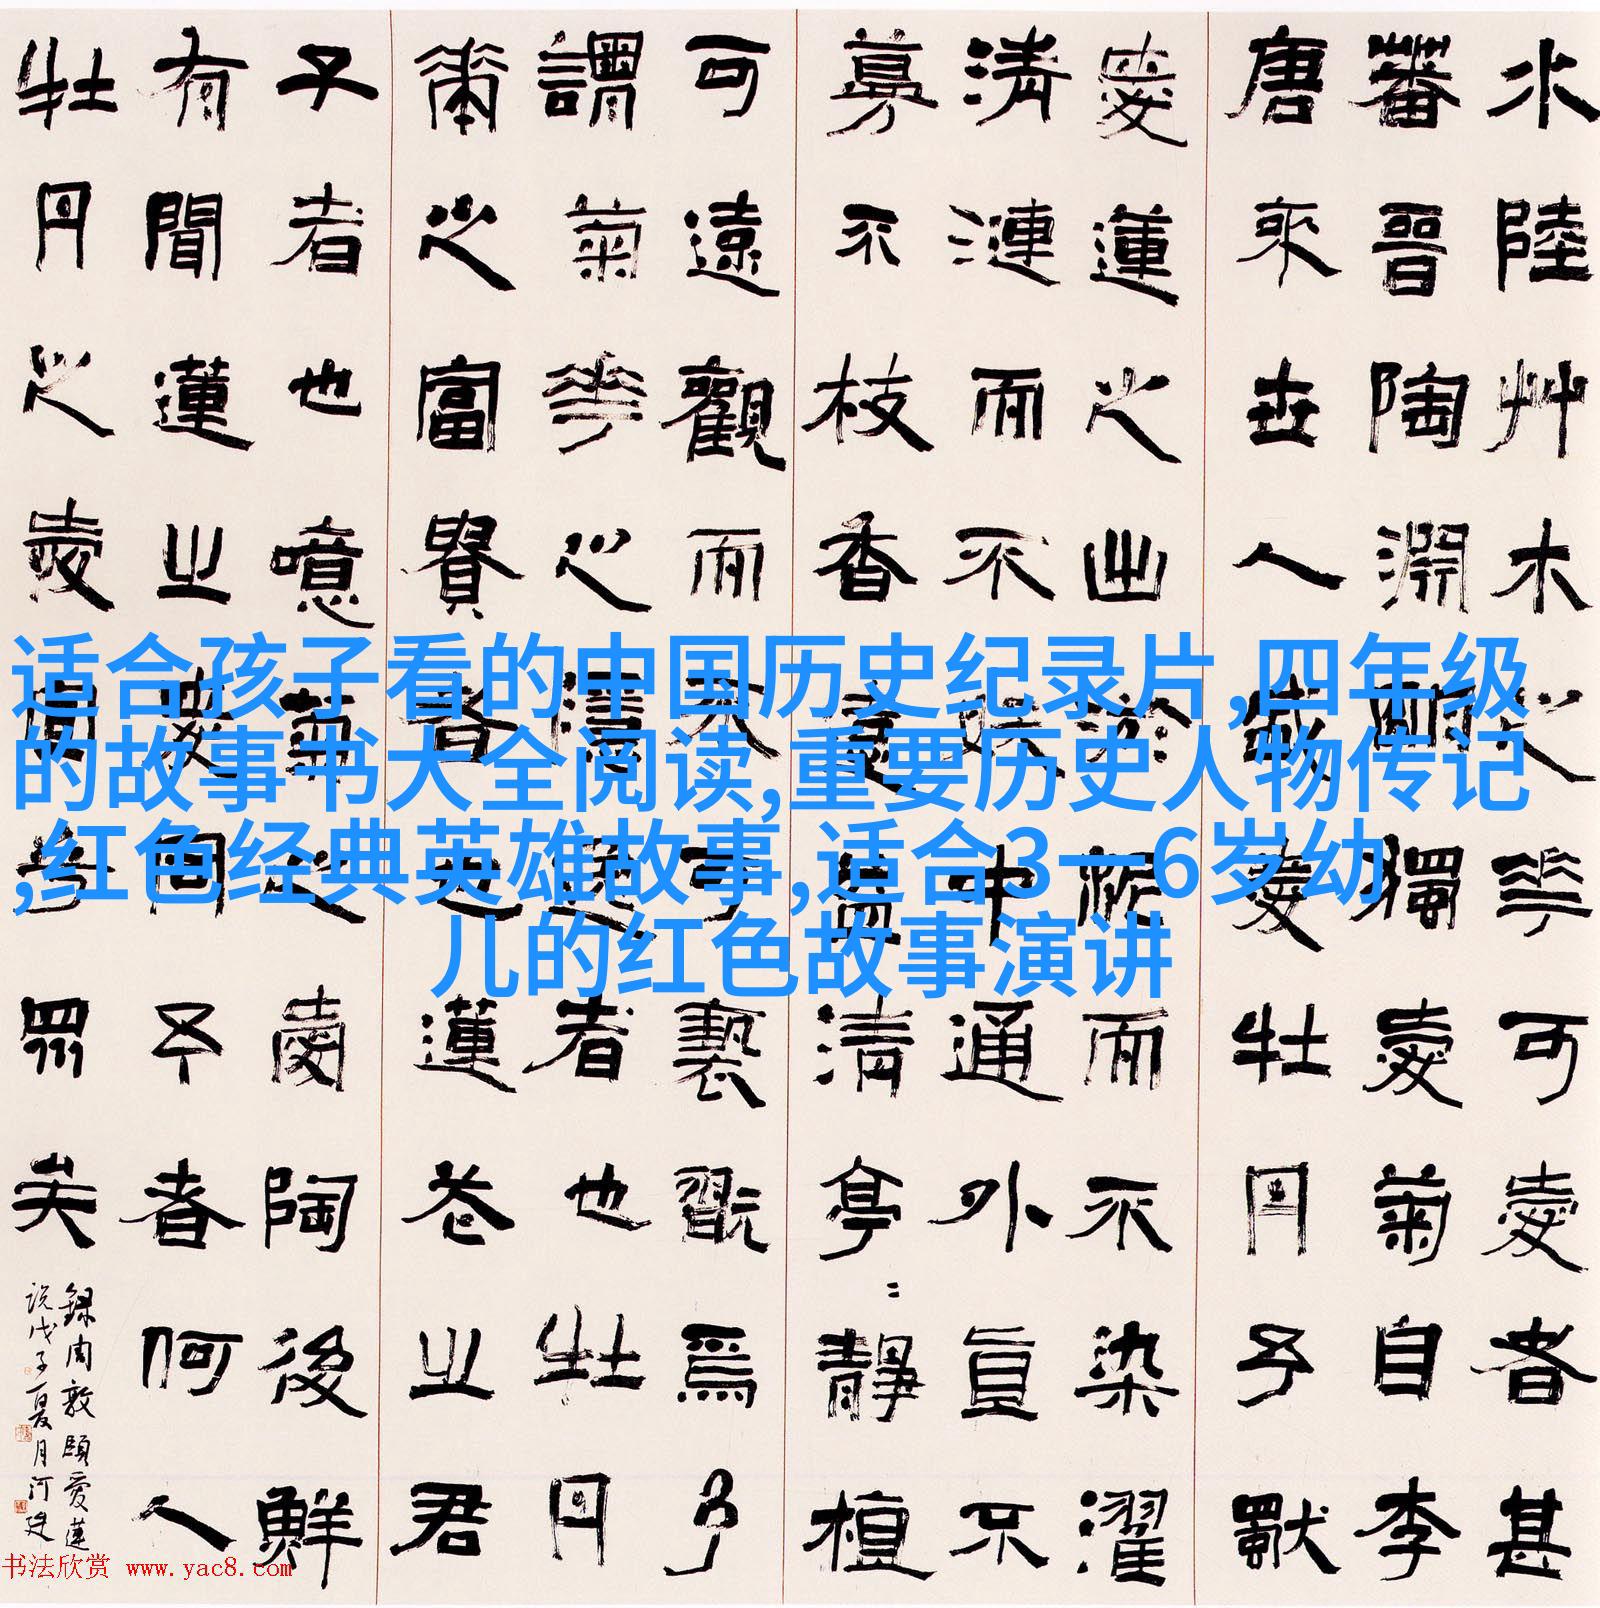 水陸艸木之花可愛者甚
蕃晉陶淵明獨愛菊自李
唐來世人盛愛牡丹予獨
愛蓮之出於泥而不染濯
清漣而不妖中通外直不
蔓不枝香遠益清亭=靜植
可遠觀而不可褻翫焉予
謂菊花之隱逸者也牡丹
華之富貴者也蓮花之君
子者也噫菊之愛陶後鮮
有聞蓮之愛同予者何人
牡丹之愛宜乎眾矣
錄周敦頤愛蓮
說戊子夏月河建
适合孩子看的中国历史纪录片,四年级
的故事书大全阅读,重要历史人物传记
,红色经典英雄故事,适合3一6岁幼
儿的红色故事演讲
书法欣赏 www.yac8.com